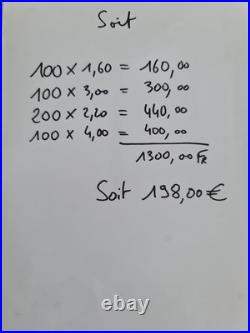 Soit
100 x 1,60 = 160,00
100 x 3,00 = 300,00
200 x 2,20 = 440,00
100 x 4,00 = 400,00
1300,00 Fr
Soit 198,00 €